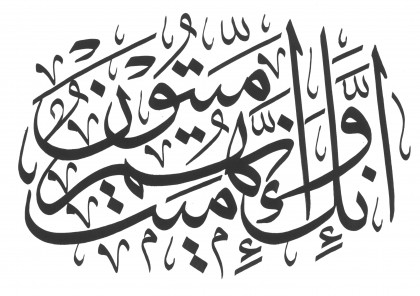 إِنَّكَ مَيِّتٌ وَإِنَّهُمْ مَيِّتُونَ